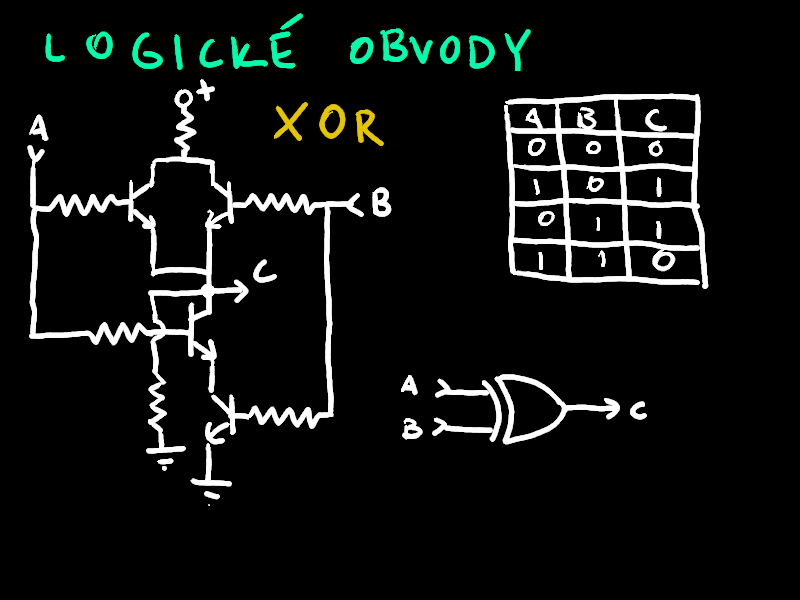 LOGICKÉ OBVODY
XOR
+
A
B
C
A B C
0 0 0
1 0 1
0 1 1
1 1 0
A
B
C